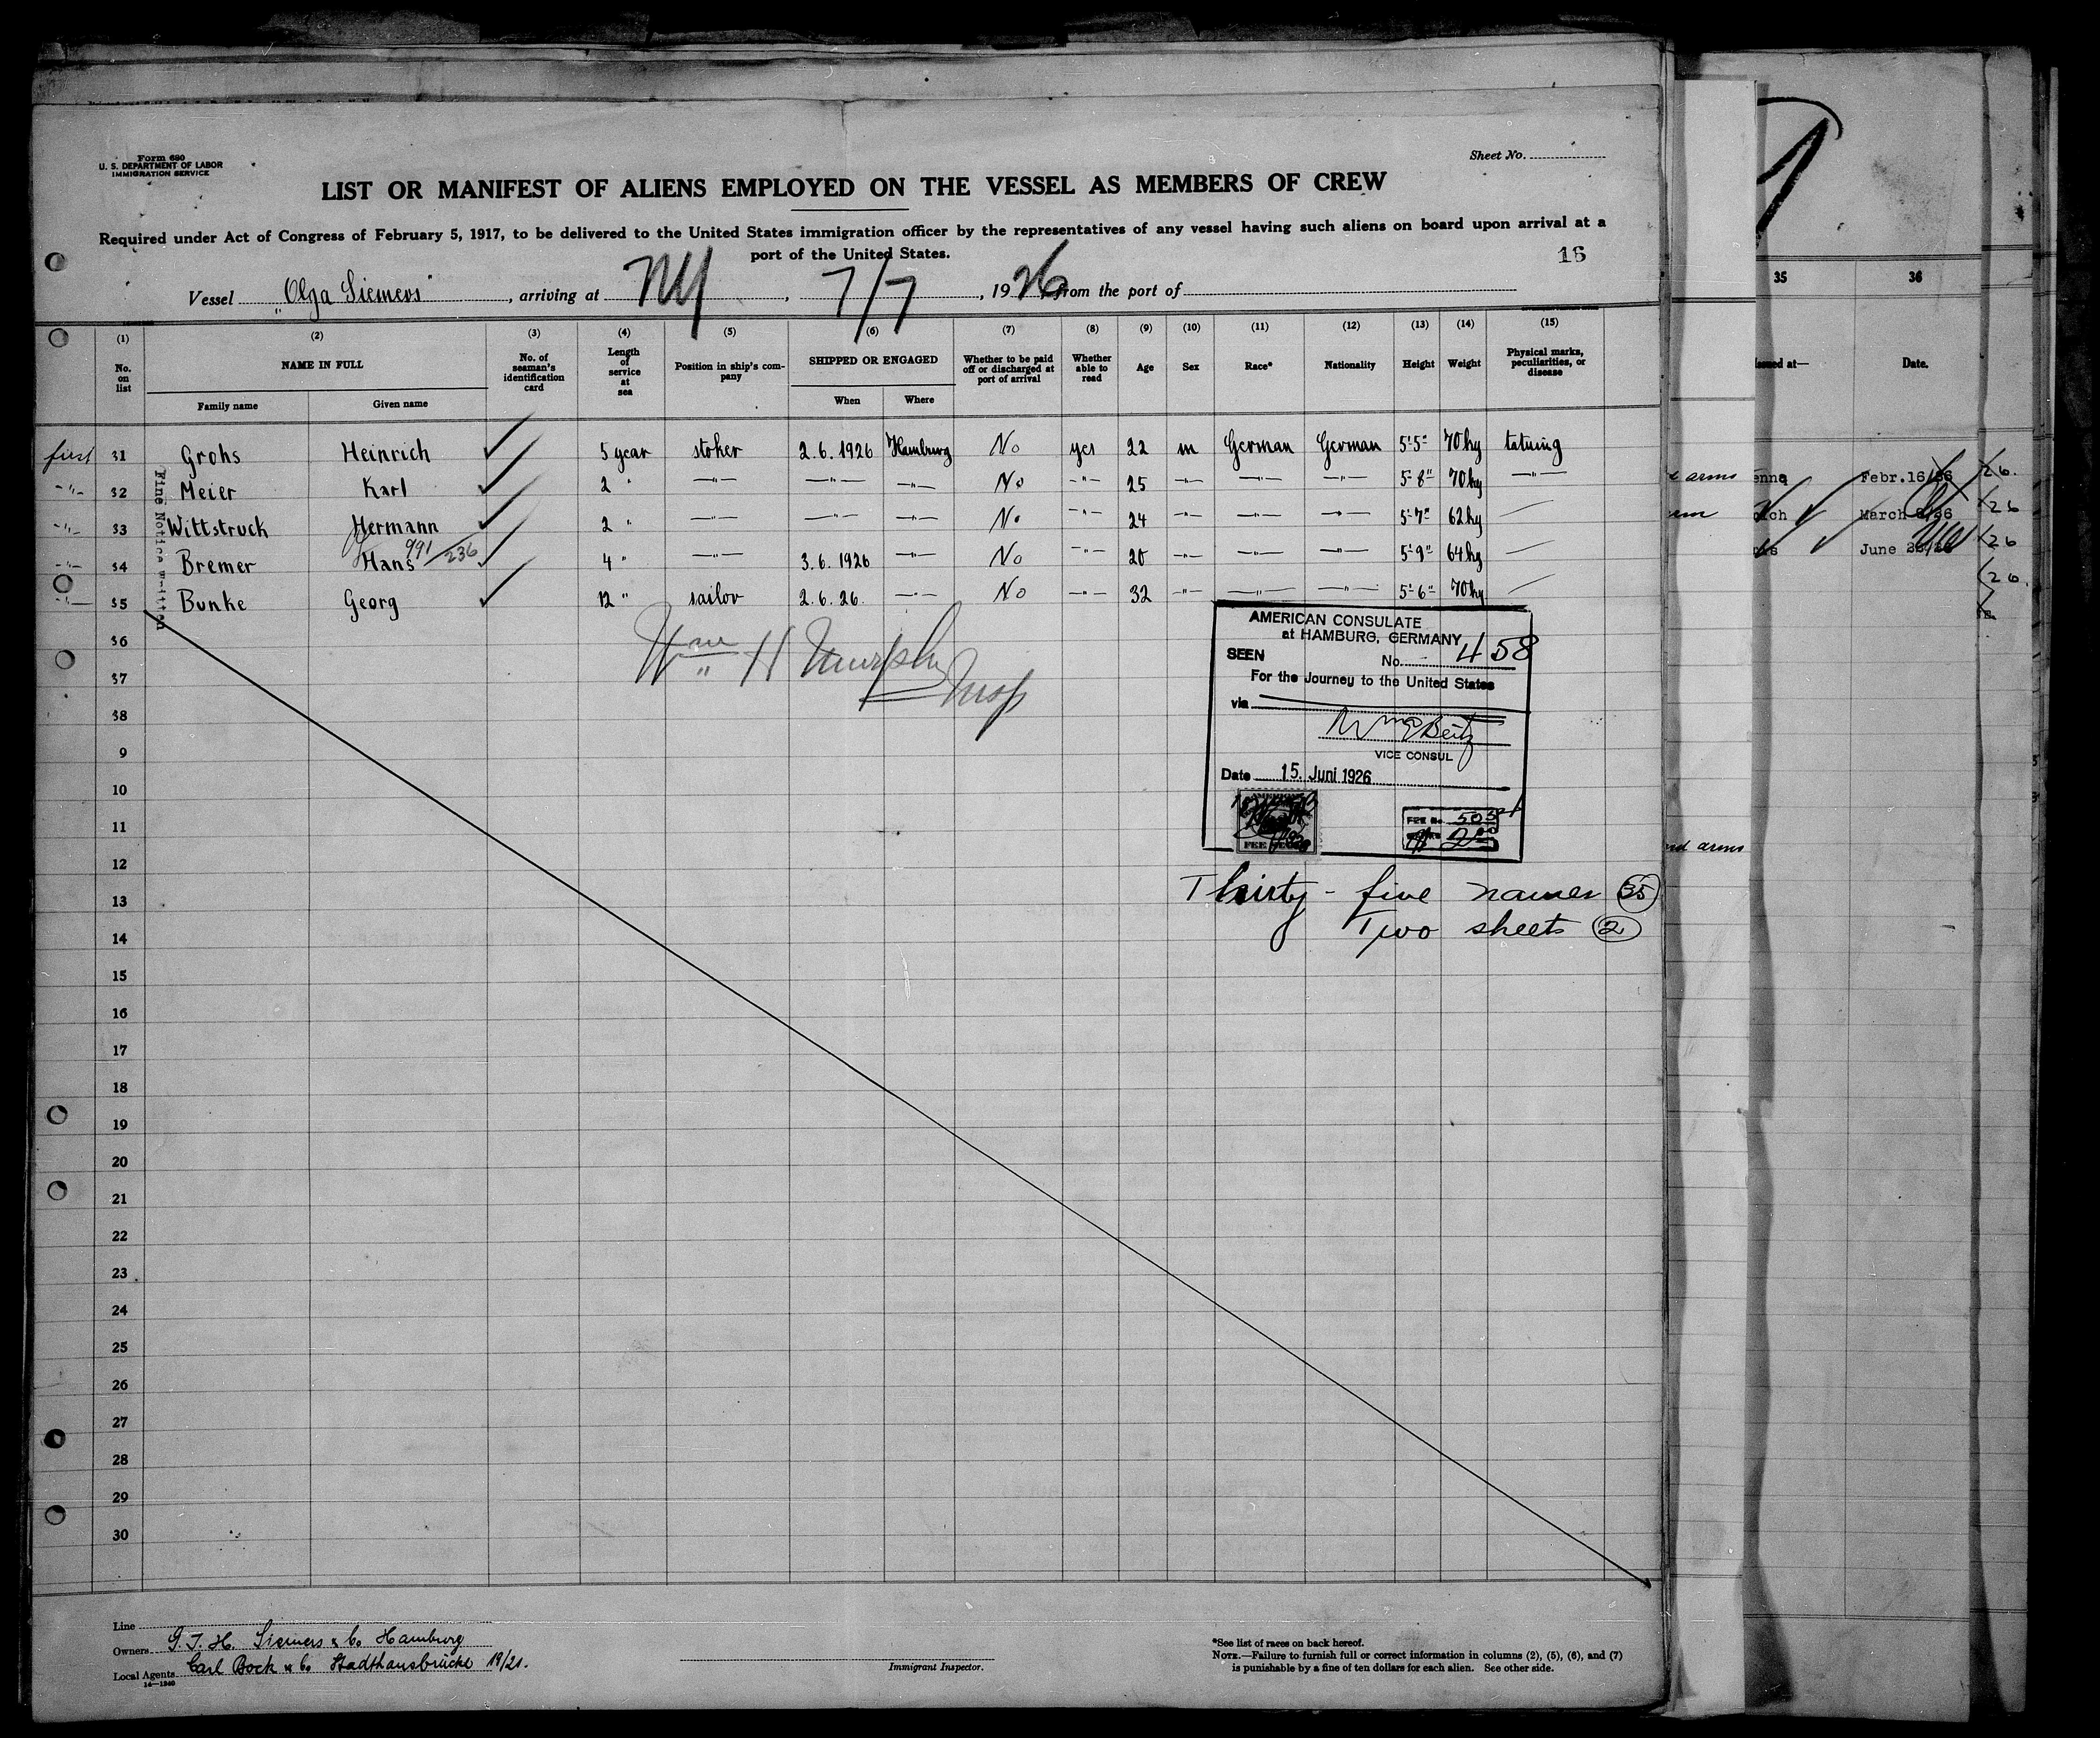 Form 680
U. S. DEPARTMENT OF LABOR
IMMIGRATION SERVICE
Sheet No.
LIST OR MANIFEST OF ALIENS EMPLOYED ON THE VESSEL AS MEMBERS OF CREW
Required under Act of Congress of February 5, 1917, to be delivered to the United States immigration officer by the representatives of any vessel having such aliens on board upon arrival at a
port of the United States.
16
Vessel "Olga Siemers", arriving at NY, 7/7, 1926, from the port of
(1) (2) (3) (4) (5) (6) (7) (8) (9) (10) (11) (12) (13) (14) (15)
No. on list NAME IN FULL No. of seaman's identification card Length of service at sea Position in ship's company SHIPPED OR ENGAGED Whether to be paid off or discharged at port of arrival Whether able to read Age Sex Race* Nationality Height Weight Physical marks, peculiarities, or disease
Family name Given name When Where
first 31 Grohs Heinrich 5 year stoker 2.6.1926 Hamburg No yes 22 m German German 5'5" 70kg tatuing
-"- 32 Meier Karl 2 " -"- -"- -"- No -"- 25 -"- -"- -"- 5'8" 70kg -"-
-"- 33 Wittstruck Hermann 2 " -"- -"- -"- No -"- 24 -"- -"- -"- 5'7" 62kg
991/236
-"- 34 Bremer Hans 4 " -"- 3.6.1926 -"- No -"- 20 -"- -"- -"- 5'9" 64kg
-"- 35 Bunke Georg 12 " sailor 2.6.26. -"- No -"- 32 -"- -"- -"- 5'6" 70kg
Fine Notice written
36
37
38
9
10
11
12
13
14
15
16
17
18
19
20
21
22
23
24
25
26
27
28
29
30
Wm H Murphy
Insp
AMERICAN CONSULATE
at HAMBURG, GERMANY
SEEN No. 458
For the Journey to the United States
via
VICE CONSUL
Date 15. Juni 1926
FEE No. 503
Thirty-five names 35
Two sheets 2
Line
Owners G. J. H. Siemers & Co Hamburg
Local Agents Carl Bock & Co Stadthausbrücke 19/21.
14—1240
Immigrant Inspector.
*See list of races on back hereof.
NOTE.—Failure to furnish full or correct information in columns (2), (5), (6), and (7)
is punishable by a fine of ten dollars for each alien. See other side.
35 36
Issued at— Date.
arms
Febr.16/26
March
June
26.
26
26
26.
and arms